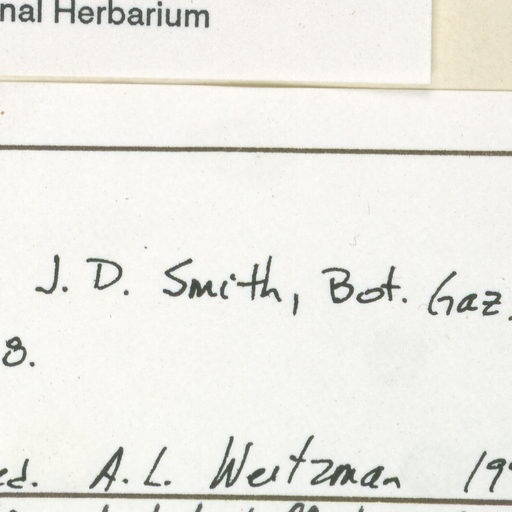 nal Herbarium
J. D. Smith, Bot. Gaz.
8.
ed. A. L. Weitzman 19